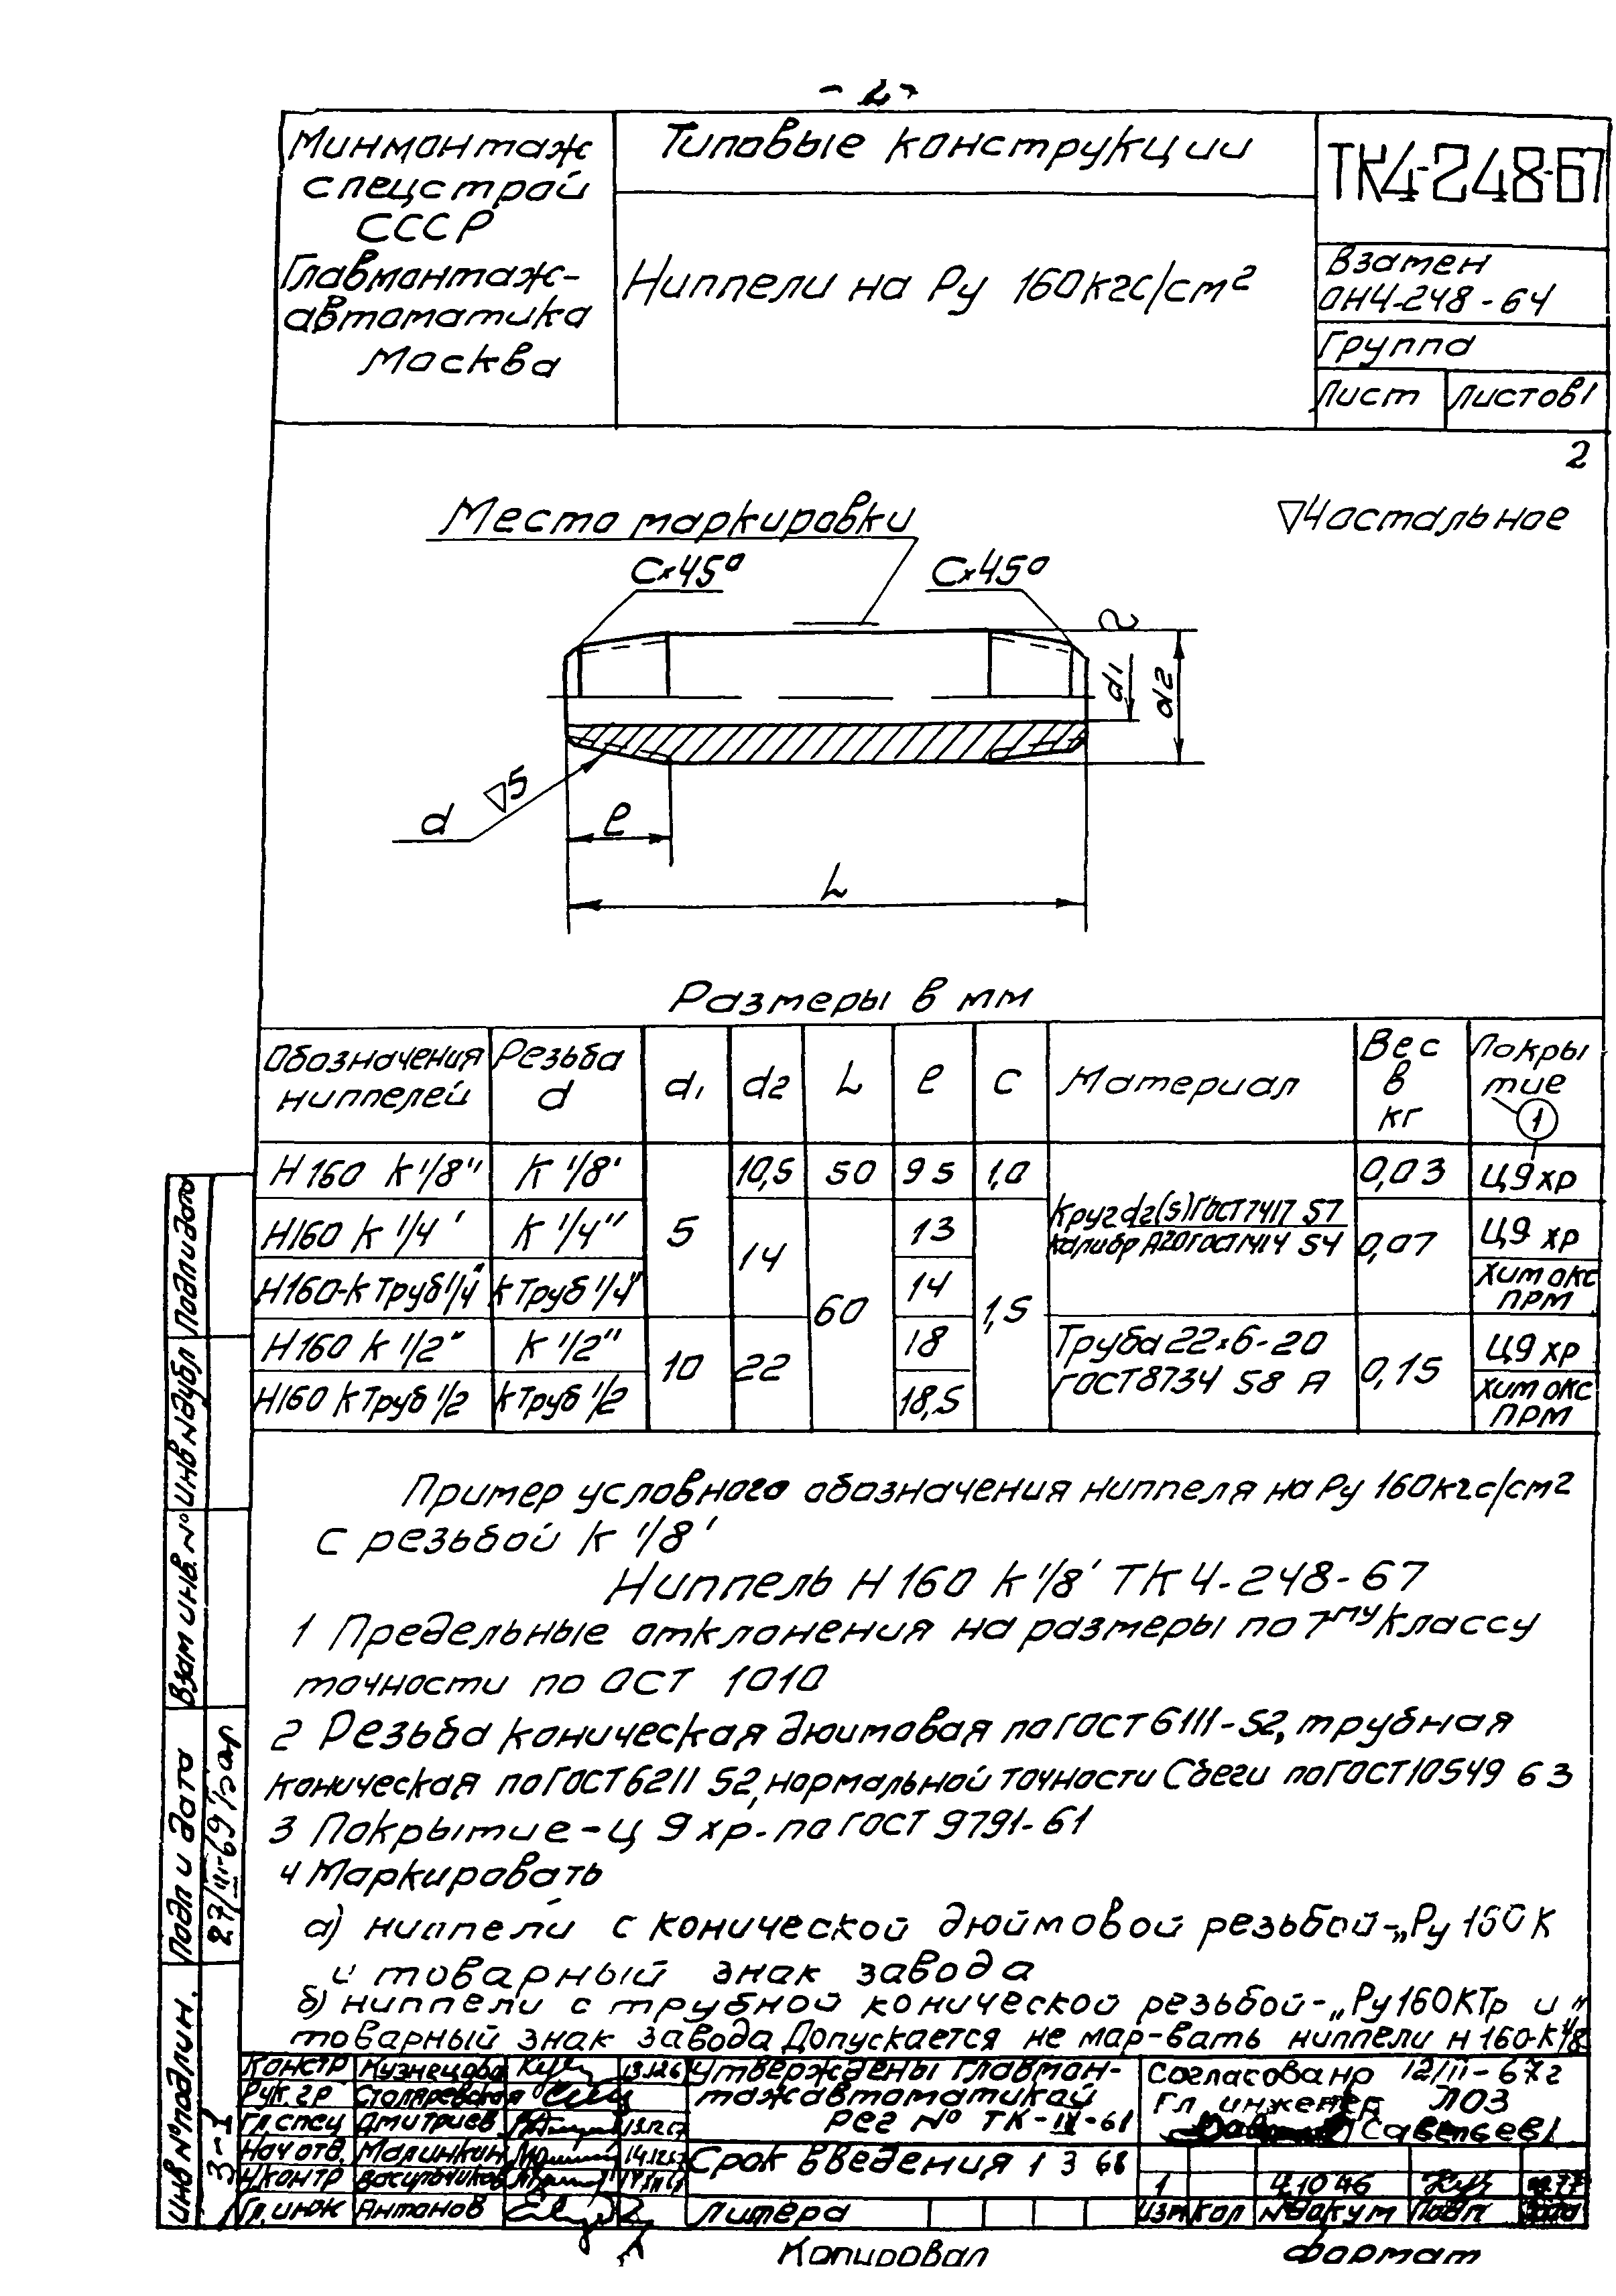 - 2 -
Минмонтаж
спецстрой
СССР
Главмонтаж-
автоматика
Москва
Типовые конструкции
Ниппели на Ру 160кгс/см²
ТК4-248-67
Взамен
ОН4-248-64
Группа
Лист
Листов 1
2
Место маркировки
▽4 остальное
С×45°
С×45°
d1
d2
▽5
d
ℓ
L
Размеры в мм
Обозначения ниппелей
Резьба d
d1
d2
L
ℓ
с
Материал
Вес в кг
Покры тие
1
Н 160 К 1/8"
К 1/8'
5
10,5
50
9 5
1,0
Круг d2(5) ГОСТ 7417 57
Калибр А20 ГОСТ 1414 54
0,03
Ц9 хр
Н160 К 1/4'
К 1/4"
14
60
13
1,5
0,07
Ц9 хр
Н160-К Труб 1/4"
К Труб 1/4"
14
Хим окс
прм
Н 160 К 1/2"
К 1/2"
10
22
18
Труба 22×6-20
ГОСТ 8734 58 А
0,15
Ц9 хр
Н160 К Труб 1/2
К Труб 1/2
18,5
Хим окс
прм
Пример условного обозначения ниппеля на Ру 160кгс/см²
с резьбой К 1/8'
Ниппель Н 160 К 1/8' ТК 4-248-67
1 Предельные отклонения на размеры по 7му классу
точности по ОСТ 1010
2 Резьба коническая дюймовая по ГОСТ 6111-52, трубная
коническая по ГОСТ 6211 52, нормальной точности Сбеги по ГОСТ 10549 63
3 Покрытие - Ц 9 хр. по ГОСТ 9791-61
4 Маркировать
а) ниппели с конической дюймовой резьбой - „Ру 160 К
и товарный знак завода
б) ниппели с трубной конической резьбой - „Ру 160КТр и "
товарный знак завода Допускается не мар-вать ниппели Н 160-К 1/8
Подп и дата
Инв № дубл
Взам инв. №
Подп и дата
27/III-69г
Инв № подлин.
3-1
Констр Кузнецова
Рук. гр Столяревская
Гл. спец Дмитриев
Нач отв. Малинкин
Н контр
Гл. инж Антонов
Утверждены Главмон-
тажавтоматикой
Рег № ТК-IV-61
Срок введения 1 3 68
Литера
Согласовано 12/II-67г
Гл инженер ЛОЗ
1 4.10 46
Изм Кол № докум Подп
Копировал
Формат